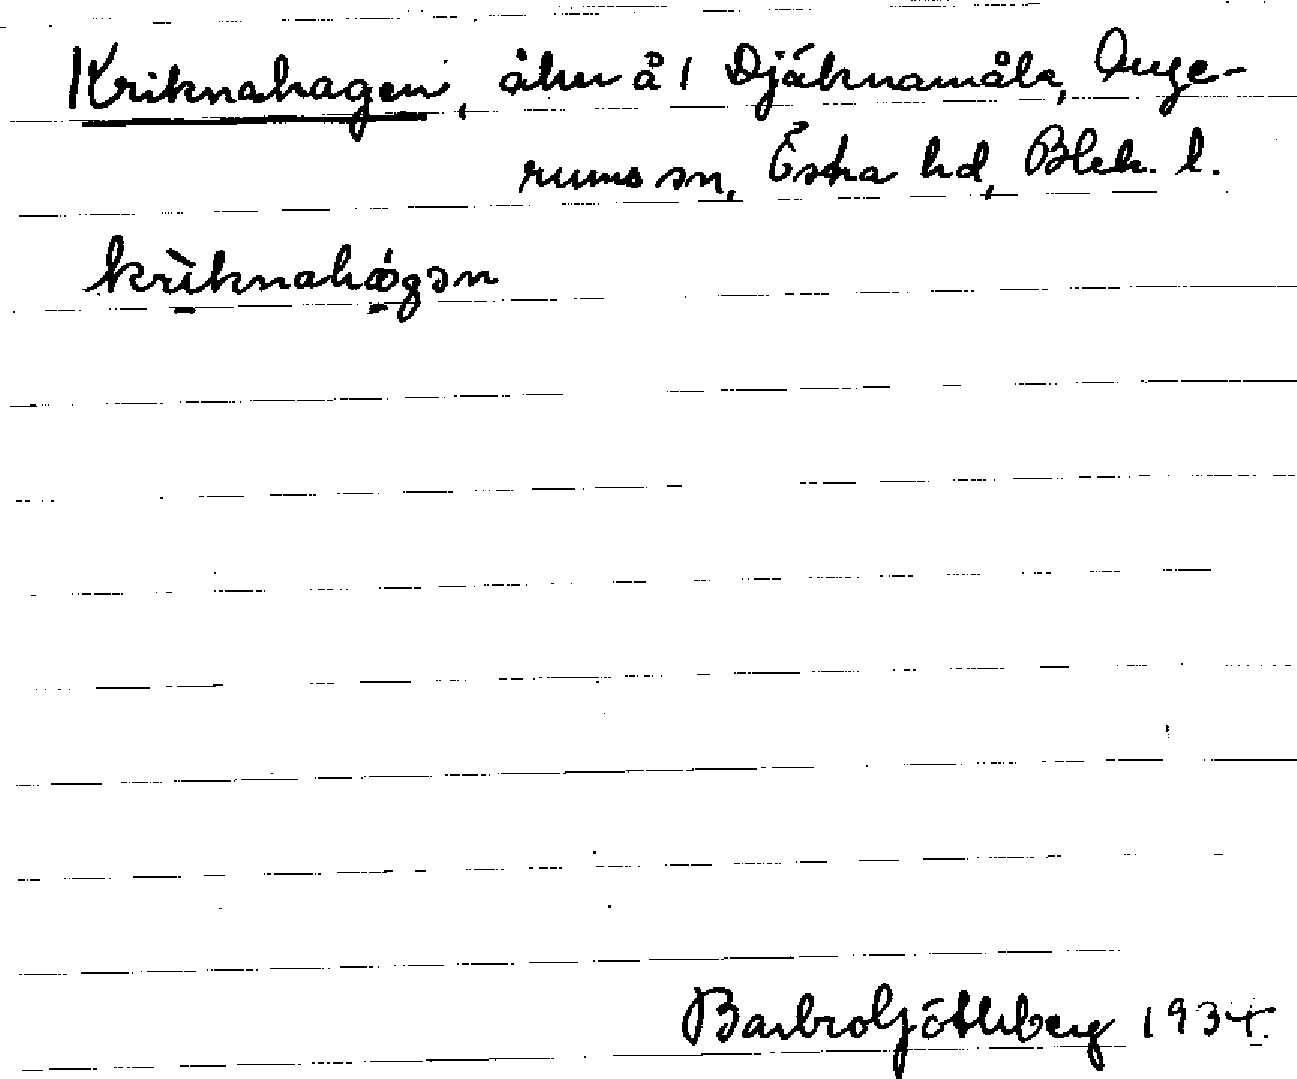 Kriknahagen, åker å 1 Djäknamåla, Auge-
rums sn, Östra hd, Blek. l.
krìknahágən
Barbro Götlberg 1934.